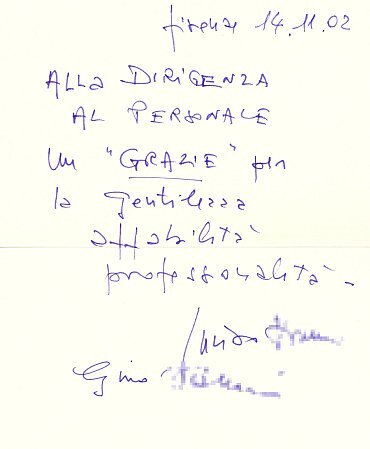 Firenze 14.11.02
ALLA DIRIGENZA
AL PERSONALE
Un "GRAZIE" per
la gentilezza
affabilità
professionalità -
Gino